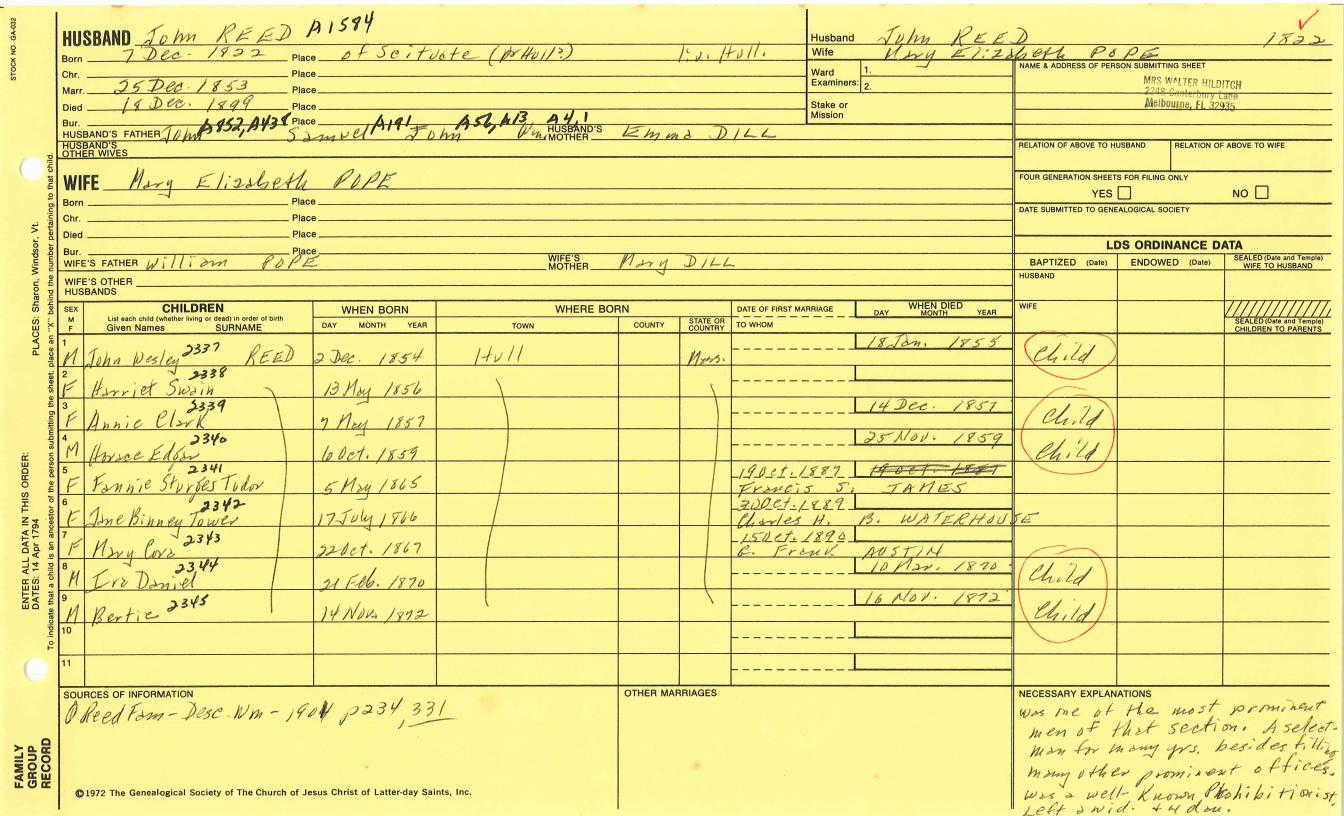 STOCK NO. GA-032
HUSBAND John REED A1584
Born 7 Dec. 1822 Place of Scituate (prHull?) Hull.
Chr. Place
Marr. 25 Dec. 1853 Place
Died 18 Dec. 1899 Place
Bur. Place
HUSBAND'S FATHER John A852, A438 Samuel A191 John A56, A13, A4, 1 Wm. HUSBAND'S MOTHER Emma DILL
HUSBAND'S OTHER WIVES
WIFE Mary Elizabeth POPE
Born Place
Chr. Place
Died Place
Bur. Place
WIFE'S FATHER William POPE WIFE'S MOTHER Mary DILL
WIFE'S OTHER HUSBANDS
Husband John REED 1822
Wife Mary Elizabeth POPE
Ward Examiners: 1.
2.
Stake or Mission
NAME & ADDRESS OF PERSON SUBMITTING SHEET
MRS WALTER HILDITCH
2248 Canterbury Lane
Melbourne, FL 32935
RELATION OF ABOVE TO HUSBAND RELATION OF ABOVE TO WIFE
FOUR GENERATION SHEETS FOR FILING ONLY
YES NO
DATE SUBMITTED TO GENEALOGICAL SOCIETY
LDS ORDINANCE DATA
BAPTIZED (Date) ENDOWED (Date) SEALED (Date and Temple) WIFE TO HUSBAND
HUSBAND
WIFE
SEALED (Date and Temple) CHILDREN TO PARENTS
SEX M F
CHILDREN
List each child (whether living or dead) in order of birth
Given Names SURNAME
WHEN BORN
DAY MONTH YEAR
WHERE BORN
TOWN COUNTY STATE OR COUNTRY
DATE OF FIRST MARRIAGE
TO WHOM
WHEN DIED
DAY MONTH YEAR
1 M John Wesley 2337 REED 2 Dec. 1854 Hull Mass. 18 Jan. 1855 Child
2 F Harriet Swain 2338 13 May 1856
3 F Annie Clark 2339 7 May 1857 14 Dec. 1857 Child
4 M Horace Edgar 2340 6 Oct. 1859 25 Nov. 1859 Child
5 F Fannie Sturges Tudor 2341 5 May 1865 19 Oct. 1887 19 Oct. 1887
Francis S. JAMES
6 F Jane Binney Tower 2342 17 July 1866 30 Oct. 1889
Charles H. B. WATERHOUSE
7 F Mary Cora 2343 22 Oct. 1867 15 Oct. 1890
E. Frank AUSTIN
8 M Ira Daniel 2344 21 Feb. 1870 10 Mar. 1870 Child
9 M Bertie 2345 14 Nov. 1872 16 Nov. 1872 Child
10
11
SOURCES OF INFORMATION
Reed Fam - Desc. Wm - 1901 p234, 331
OTHER MARRIAGES
NECESSARY EXPLANATIONS
was one of the most prominent
men of that section. A select-
man for many yrs. besides filling
many other prominent offices.
was a well-known Prohibitionist.
Left a wid. + 4 dau.
©1972 The Genealogical Society of The Church of Jesus Christ of Latter-day Saints, Inc.
FAMILY
GROUP
RECORD
ENTER ALL DATA IN THIS ORDER:
DATES: 14 Apr 1794
PLACES: Sharon, Windsor, Vt.
To indicate that a child is an ancestor of the person submitting the sheet, place an "X" behind the number pertaining to that child.